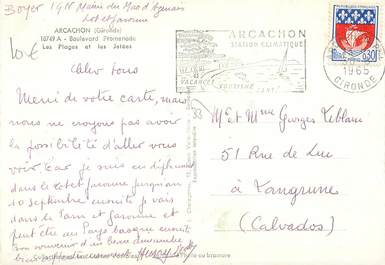 Boyer 1918 Mairie du Mas d'Agenais
Lot et Garonne
10€
ARCACHON (Gironde)
10749 A - Boulevard Promenade
Les Plages et les Jetées
ARCACHON
STATION CLIMATIQUE
VACANCES TOURISME SANTÉ
1965
GIRONDE
0,30
Cher tous
Merci de votre carte, mais
nous ne croyons pas avoir
la possibilité d'aller vous
voir car je suis en déplacement
dans le Lot et Garonne jusqu'au
10 septembre ensuite je vais
dans le Tarn et Garonne et
peut être au Pays basque ensuite
Bon souvenir d'un beau dimanche
M. et Mme Georges Leblanc
51 Rue de Luc
à Langrune
(Calvados)